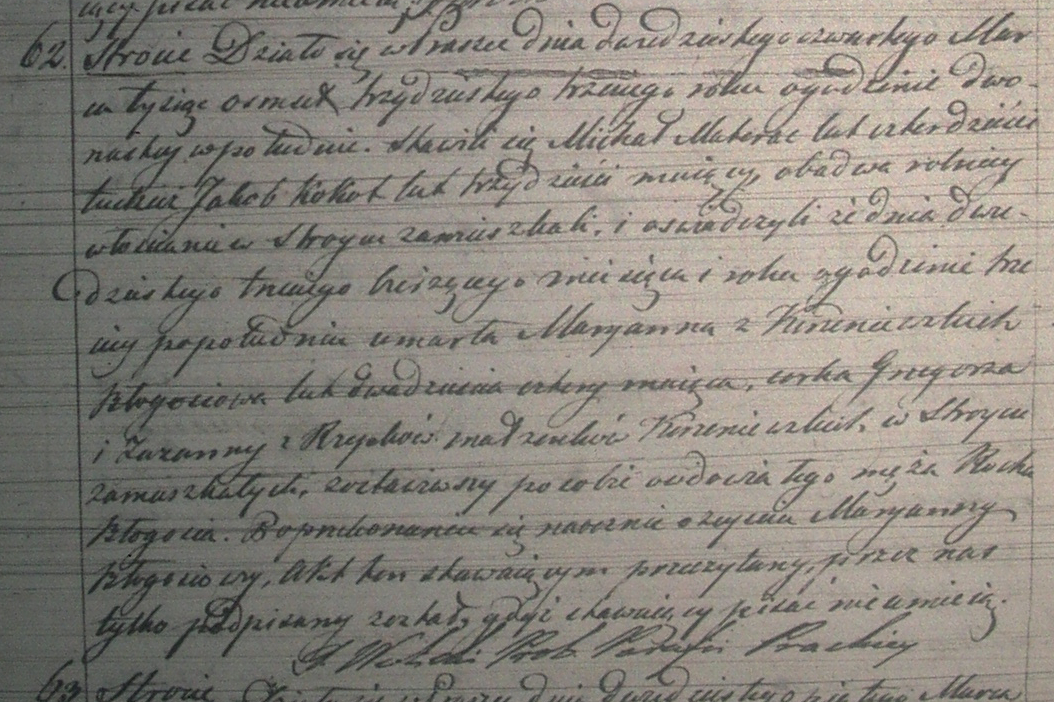 62. Stroie Działo się w Praszce dnia dwudziestego czwartego Mar
ca tysiąc osmset trzydziestego trzeciego roku o godzinie dwo-
nastey w południe. Stawili się Michał Materac lat czterdzieści
tudzież Jakob Kokot lat trzydzieści maiący, obadwa rolnicy
włościanie w Stroycu zamieszkali, i oswiadczyli że dnia dwu-
dziestego trzeciego bieżącego miesiąca i roku o godzinie trze
ciey popołudniu umarła Maryanna z
Kłogociowa lat dwadzieścia cztery maiąca, corka Grzegorza
i Zuzanny z małżonków w Stroycu
zamieszkałych, zostawiwszy po sobie owdowiałego męża Rocha
Kłogocia. Po przekonaniu się naocznie o zeyściu Maryanny
Kłogociowy, Akt ten stawaiącym przeczytany, przez nas
tylko podpisany został, gdyż stawaiący pisać nieumieią.
Prob. Parafii
63. Stroie Działo się w Praszce dnia dwudziestego piątego Marca